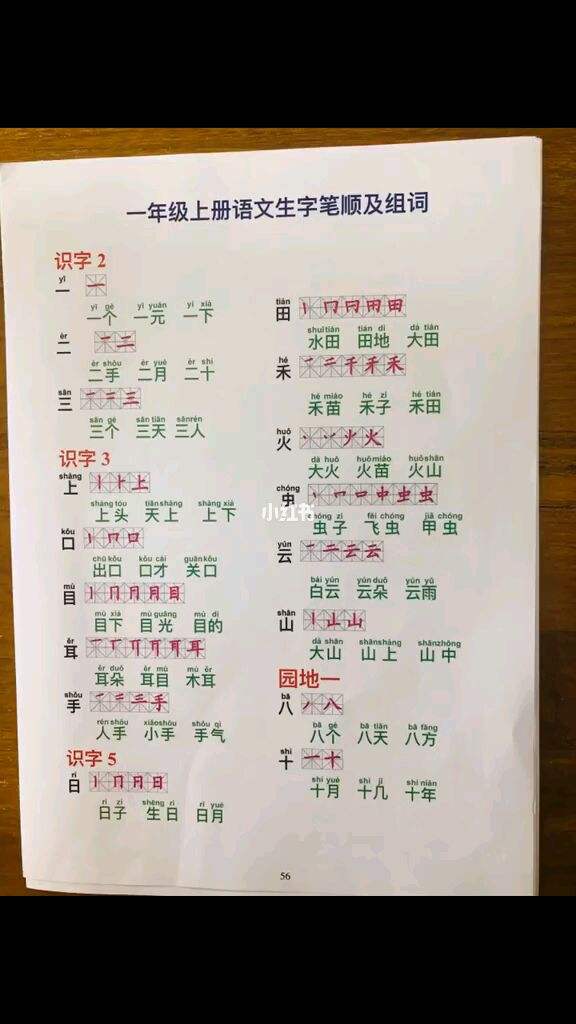 一年级上册语文生字笔顺及组词
识字 2
yī
一 一
yī gè yī yuán yí xià
一个 一元 一下
èr
二 一二
èr shǒu èr yuè èr shí
二手 二月 二十
sān
三 一二三
sān gè sān tiān sānrén
三个 三天 三人
识字 3
shàng
上
shàng tóu tiānshàng shàng xià
上头 天上 上下
kǒu
口
chū kǒu kǒu cái guānkǒu
出口 口才 关口
mù
目
mù xià mù guāng mù dì
目下 目光 目的
ěr
耳
ěr duǒ ěr mù mù ěr
耳朵 耳目 木耳
shǒu
手
rén shǒu xiǎoshǒu shǒu qì
人手 小手 手气
识字 5
rì
日
rì zi shēng rì rì yuè
日子 生日 日月
tián
田
shuǐtián tián dì dà tián
水田 田地 大田
hé
禾
hé miáo hé zǐ hé tián
禾苗 禾子 禾田
huǒ
火
dà huǒ huǒmiáo huǒshān
大火 火苗 火山
chóng
虫
chóng zi fēi chóng jiǎ chóng
虫子 飞虫 甲虫
yún
云
bái yún yún duǒ yún yǔ
白云 云朵 云雨
shān
山
dà shān shānshàng shānzhōng
大山 山上 山中
园地一
bā
八
bā gè bā tiān bā fāng
八个 八天 八方
shí
十
shí yuè shí jǐ shí nián
十月 十几 十年
56
小红书